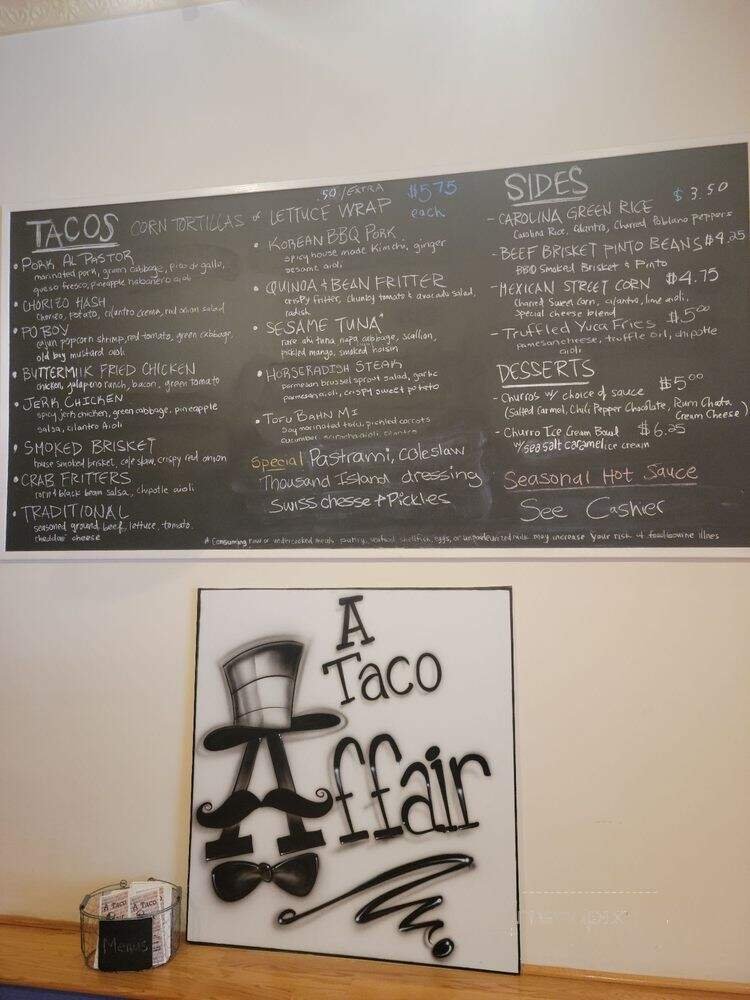 TACOS CORN TORTILLAS or LETTUCE WRAP
.50/EXTRA $5.75
each
• PORK AL PASTOR
marinated pork, green cabbage, pico de gallo,
queso fresco, pineapple habanero aioli
• CHORIZO HASH
chorizo, potato, cilantro crema, red onion salad
• PO BOY
cajun popcorn shrimp, red tomato, green cabbage,
old bay mustard aioli
• BUTTERMILK FRIED CHICKEN
chicken, jalapeno ranch, bacon, green tomato
• JERK CHICKEN
spicy jerk chicken, green cabbage, pineapple
salsa, cilantro aioli
• SMOKED BRISKET
house smoked brisket, cole slaw, crispy red onion
• CRAB FRITTERS
corn & black bean salsa, chipotle aioli
• TRADITIONAL
seasoned ground beef, lettuce, tomato,
cheddar cheese
• KOREAN BBQ PORK
spicy house made kimchi, ginger
sesame aioli
• QUINOA + BEAN FRITTER
crispy fritter, chunky tomato & avocado salad,
radish
• SESAME TUNA*
rare ahi tuna, napa cabbage, scallion,
pickled mango, smoked hoisin
• HORSERADISH STEAK
parmesan brussel sprout salad, garlic
parmesan aioli, crispy sweet potato
• TOFU BAHN MI
Soy marinated tofu, pickled carrots
cucumber, sriracha aioli, cilantro
Special Pastrami, coleslaw
Thousand Island dressing
Swiss chesse + Pickles
SIDES
- CAROLINA GREEN RICE $3.50
Carolina Rice, cilantro, Charred Poblano peppers
- BEEF BRISKET PINTO BEANS $4.25
BBQ Smoked Brisket & Pinto
- MEXICAN STREET CORN $4.75
Charred Sweet corn, cilantro, lime aioli,
special cheese blend
- Truffled Yuca Fries $5.00
parmesan cheese, truffle oil, chipotle
aioli
DESSERTS
- Churros w/ choice of sauce $5.00
(Salted Caramel, Chili Pepper Chocolate, Rum Chata
Cream Cheese)
- Churro Ice Cream Bowl $6.25
w/ sea salt caramel ice cream
Seasonal Hot Sauce
See Cashier
* Consuming raw or undercooked meats, poultry, seafood, shellfish, eggs, or unpasteurized milk may increase your risk of foodbourne illnes
A
Taco
Affair
A Taco
Menus